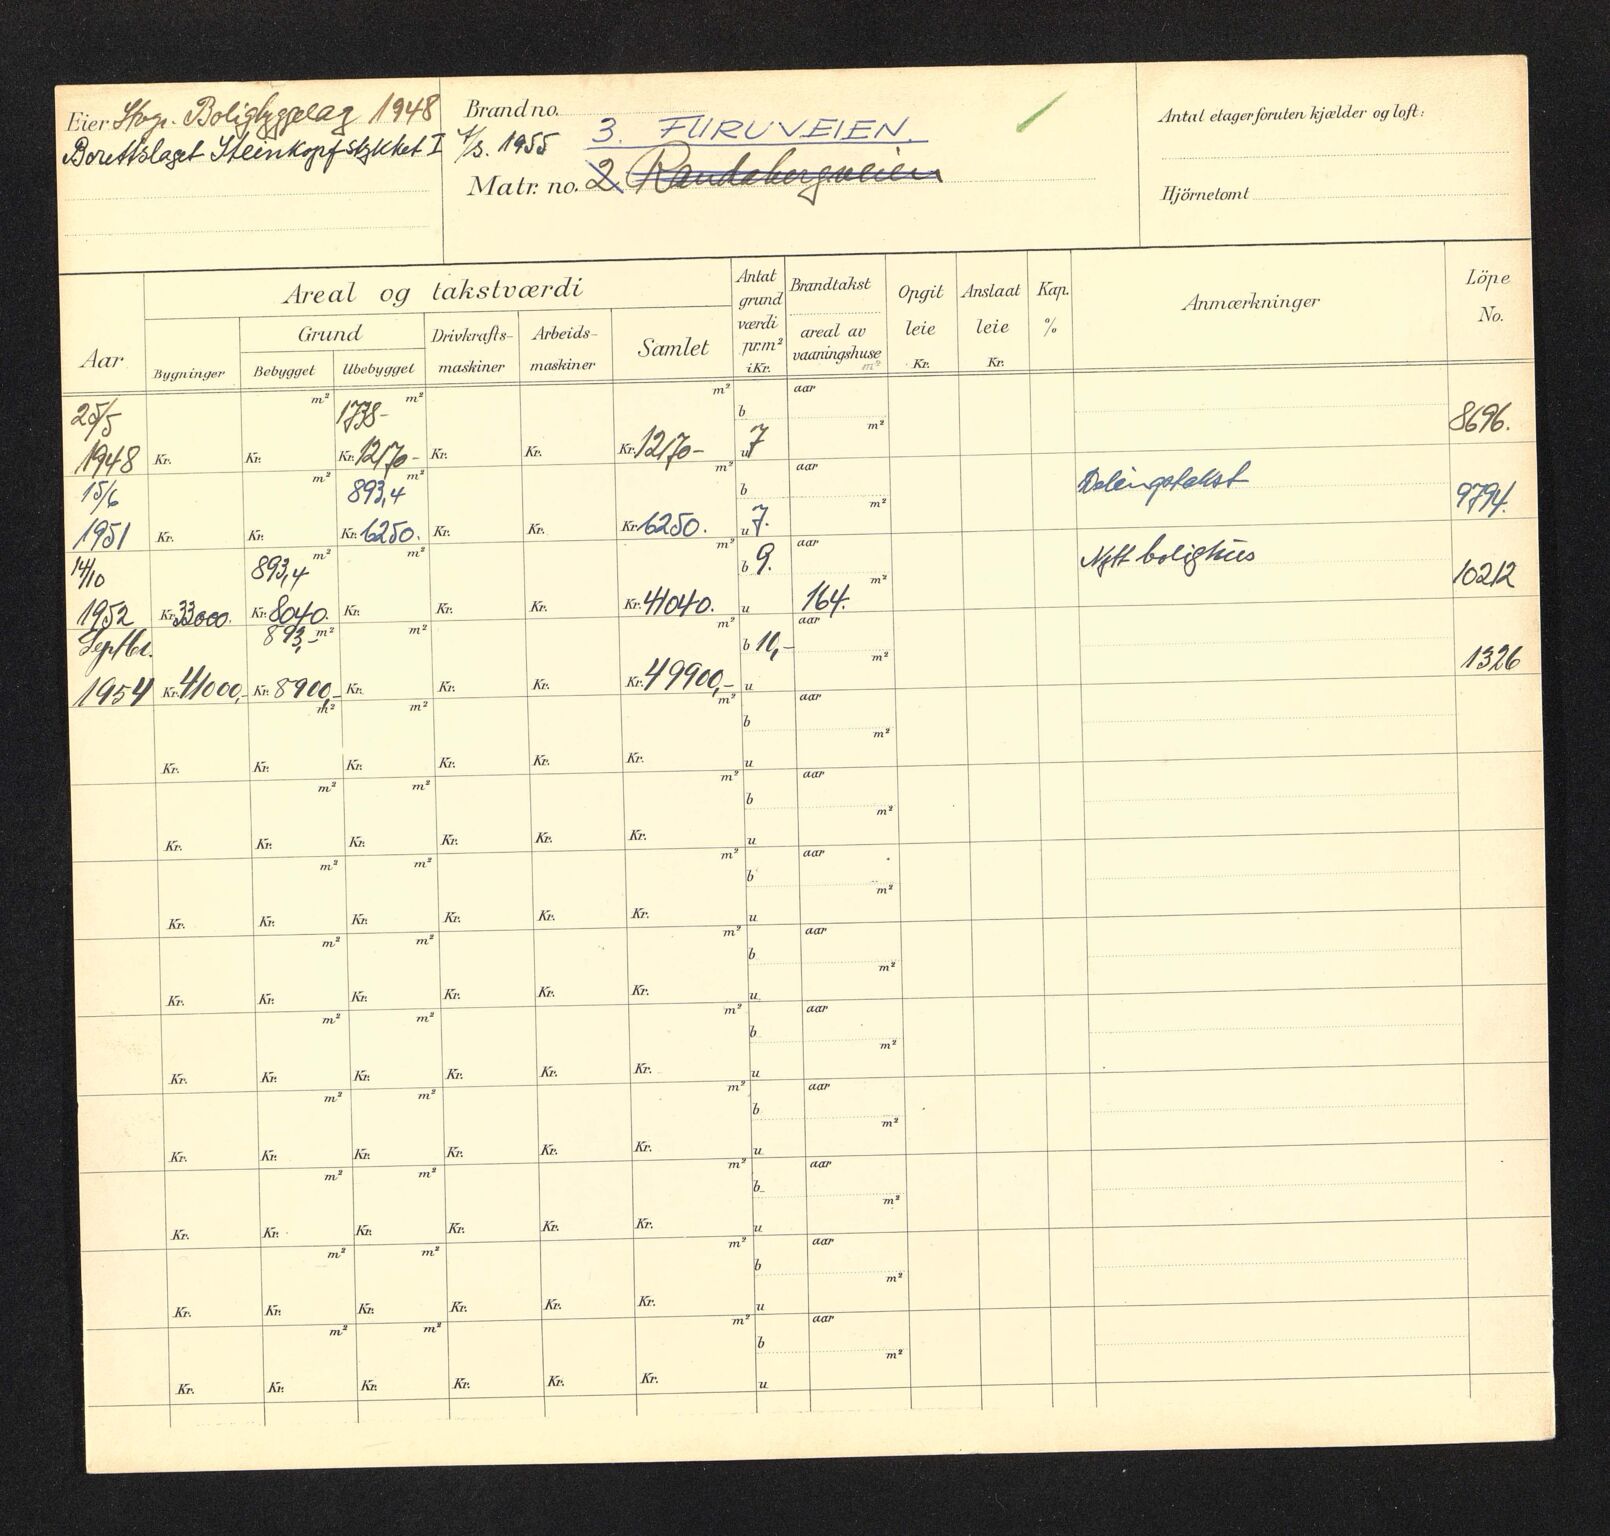 Eier Stvgr. Boligbyggelag 1948
Borettslaget Steinkopfstykket I 1/3. 1955
Brand no.
3. FURUVEIEN.
Matr. no. 2 Randabergveien
Antal etager foruten kjælder og loft:
Hjörnetomt
Aar
Areal og takstværdi
Bygninger
Grund
Bebygget
Ubebygget
Drivkrafts-
maskiner
Arbeids-
maskiner
Samlet
Antat
grund
værdi
pr.m²
i Kr.
Brandtakst
areal av
vaaningshuse
m²
Opgit
leie
Kr.
Anslaat
leie
Kr.
Kap.
%
Anmærkninger
Löpe
No.
25/5 m² 1738- m² m² b aar
1948 Kr. Kr. Kr. 12170- Kr. Kr. Kr. 12170- u 7 m² 8696.
15/6 m² 893,4 m² m² b aar Delingstakst
1951 Kr. Kr. Kr. 6250. Kr. Kr. Kr. 6250. u 7. m² 9794.
14/10 893,4 m² m² m² b 9. aar Nytt bolighus
1952 Kr. 33000. Kr. 8040. Kr. Kr. Kr. Kr. 41040. u 164. m² 10212
Septbr. 893,- m² m² m² b 10,- aar
1954 Kr. 41000,- Kr. 8900,- Kr. Kr. Kr. Kr. 49900,- u m² 1326
m² m² m² b aar m²
Kr. Kr. Kr. Kr. Kr. Kr. u
m² m² m² b aar m²
Kr. Kr. Kr. Kr. Kr. Kr. u
m² m² m² b aar m²
Kr. Kr. Kr. Kr. Kr. Kr. u
m² m² m² b aar m²
Kr. Kr. Kr. Kr. Kr. Kr. u
m² m² m² b aar m²
Kr. Kr. Kr. Kr. Kr. Kr. u
m² m² m² b aar m²
Kr. Kr. Kr. Kr. Kr. Kr. u
m² m² m² b aar m²
Kr. Kr. Kr. Kr. Kr. Kr. u
m² m² m² b aar m²
Kr. Kr. Kr. Kr. Kr. Kr. u
m² m² m² b aar m²
Kr. Kr. Kr. Kr. Kr. Kr. u